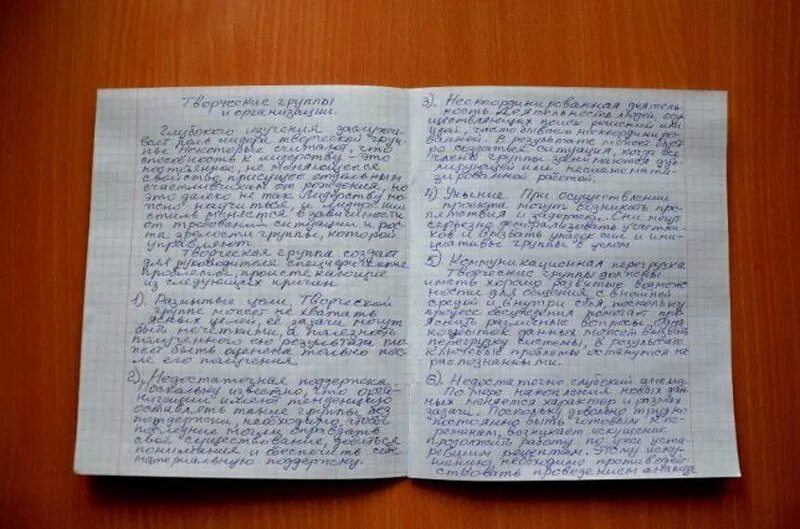 Творческие группы
и организации.
Глубокого изучения заслужи-
вает роль лидера творческой груп-
пы. Некоторые считают, что
способность к лидерству – это
постоянное, не меняющееся
свойство, присущее отдельным
счастливчикам от рождения, но
это далеко не так. Лидерству мо-
жно научиться, и лидерский
стиль меняется в зависимости
от требований ситуации и рос-
та зрелости группы, которой
управляют.
Творческая группа создает
для руководителя специфические
проблемы, проистекающие
из следующих причин.
1). Размытые цели. Творческой
группе может не хватать
ясных целей, ее задачи могут
быть нечеткими, а полезность
полученного ею результата мо-
жет быть оценена только пос-
ле его получения.
2). Недостаточная поддержка.
Поскольку известно, что орга-
низации имеют тенденцию
оставлять такие группы без
поддержки, необходимо, чтобы
последние могли оправдать
свое существование, добиться
понимания и обеспечить себе
материальную поддержку.
3). Нескоординированная деятель-
ность. Деятельность людей, осу-
ществляющих поиск решений или
идей, часто бывает нескоординиро-
ванной. В результате может быст-
ро создаться ситуация, когда все
члены группы занимаются дуб-
лирующей или несистемати-
зированной работой.
4). Уныние. При осуществлении
проекта могут возникать пре-
пятствия и задержки. Они могут
серьезно деморализовать участни-
ков и вызвать упадок сил и ини-
циативы группы в целом.
5). Коммуникационная перегрузка.
Творческие группы должны
иметь хорошо развитые возмож-
ности для общения с внешней
средой и внутри себя, поскольку
процесс обсуждения помогает про-
яснить различные вопросы. Одна-
ко избыток данных может вызвать
перегрузку системы, в результате
ключевые проблемы останутся не-
распознанными.
6). Недостаточно глубокий анализ.
По мере накопления новых дан-
ных меняется характер и размах
задачи. Поскольку довольно трудно
постоянно быть готовым к пе-
ременам, возникает искушение
продолжить работу по уже уста-
ревшим рецептам. Этому иску-
шению необходимо противодей-
ствовать проведением анализа